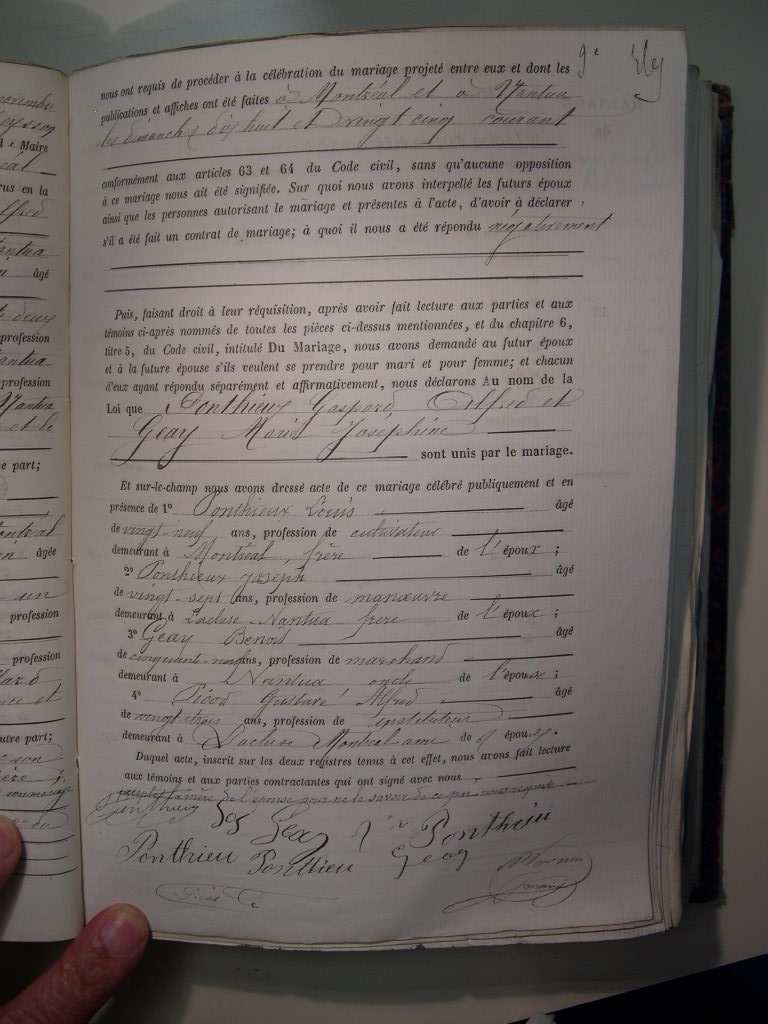 9e
nous ont requis de procéder à la célébration du mariage projeté entre eux et dont les
publications et affiches ont été faites à Montréal et à Nantua
les dimanches dix huit et vingt cinq courant
conformément aux articles 63 et 64 du Code civil, sans qu'aucune opposition
à ce mariage nous ait été signifiée. Sur quoi nous avons interpellé les futurs époux
ainsi que les personnes autorisant le mariage et présentes à l'acte, d'avoir à déclarer
s'il a été fait un contrat de mariage; à quoi il nous a été répondu négativement
Puis, faisant droit à leur réquisition, après avoir fait lecture aux parties et aux
témoins ci-après nommés de toutes les pièces ci-dessus mentionnées, et du chapitre 6,
titre 5, du Code civil, intitulé Du Mariage, nous avons demandé au futur époux
et à la future épouse s'ils veulent se prendre pour mari et pour femme; et chacun
d'eux ayant répondu séparément et affirmativement, nous déclarons Au nom de la
Loi que Ponthieux Gaspard, Alfred et
Geay Marie Joséphine
sont unis par le mariage.
Et sur-le-champ nous avons dressé acte de ce mariage célébré publiquement et en
présence de 1° Ponthieux Louis âgé
de vingt neuf ans, profession de cultivateur
demeurant à Montréal, frère de l'époux ;
2° Ponthieux Joseph âgé
de vingt-sept ans, profession de manœuvre
demeurant à Lacluse-Nantua frère de l'époux ;
3° Geay Benoit âgé
de cinquante-neuf ans, profession de marchand
demeurant à Nantua oncle de l'épouse ;
4° Picod Gustave Alfred âgé
de vingt trois ans, profession de instituteur
demeurant à Lacluse Montréal ami de l'époux.
Duquel acte, inscrit sur les deux registres tenus à cet effet, nous avons fait lecture
aux témoins et aux parties contractantes qui ont signé avec nous
excepté la mère de l'épouse pour ne le savoir de ce par nous requise
Geay Ponthieu
Ponthieu Ponthieu Geay